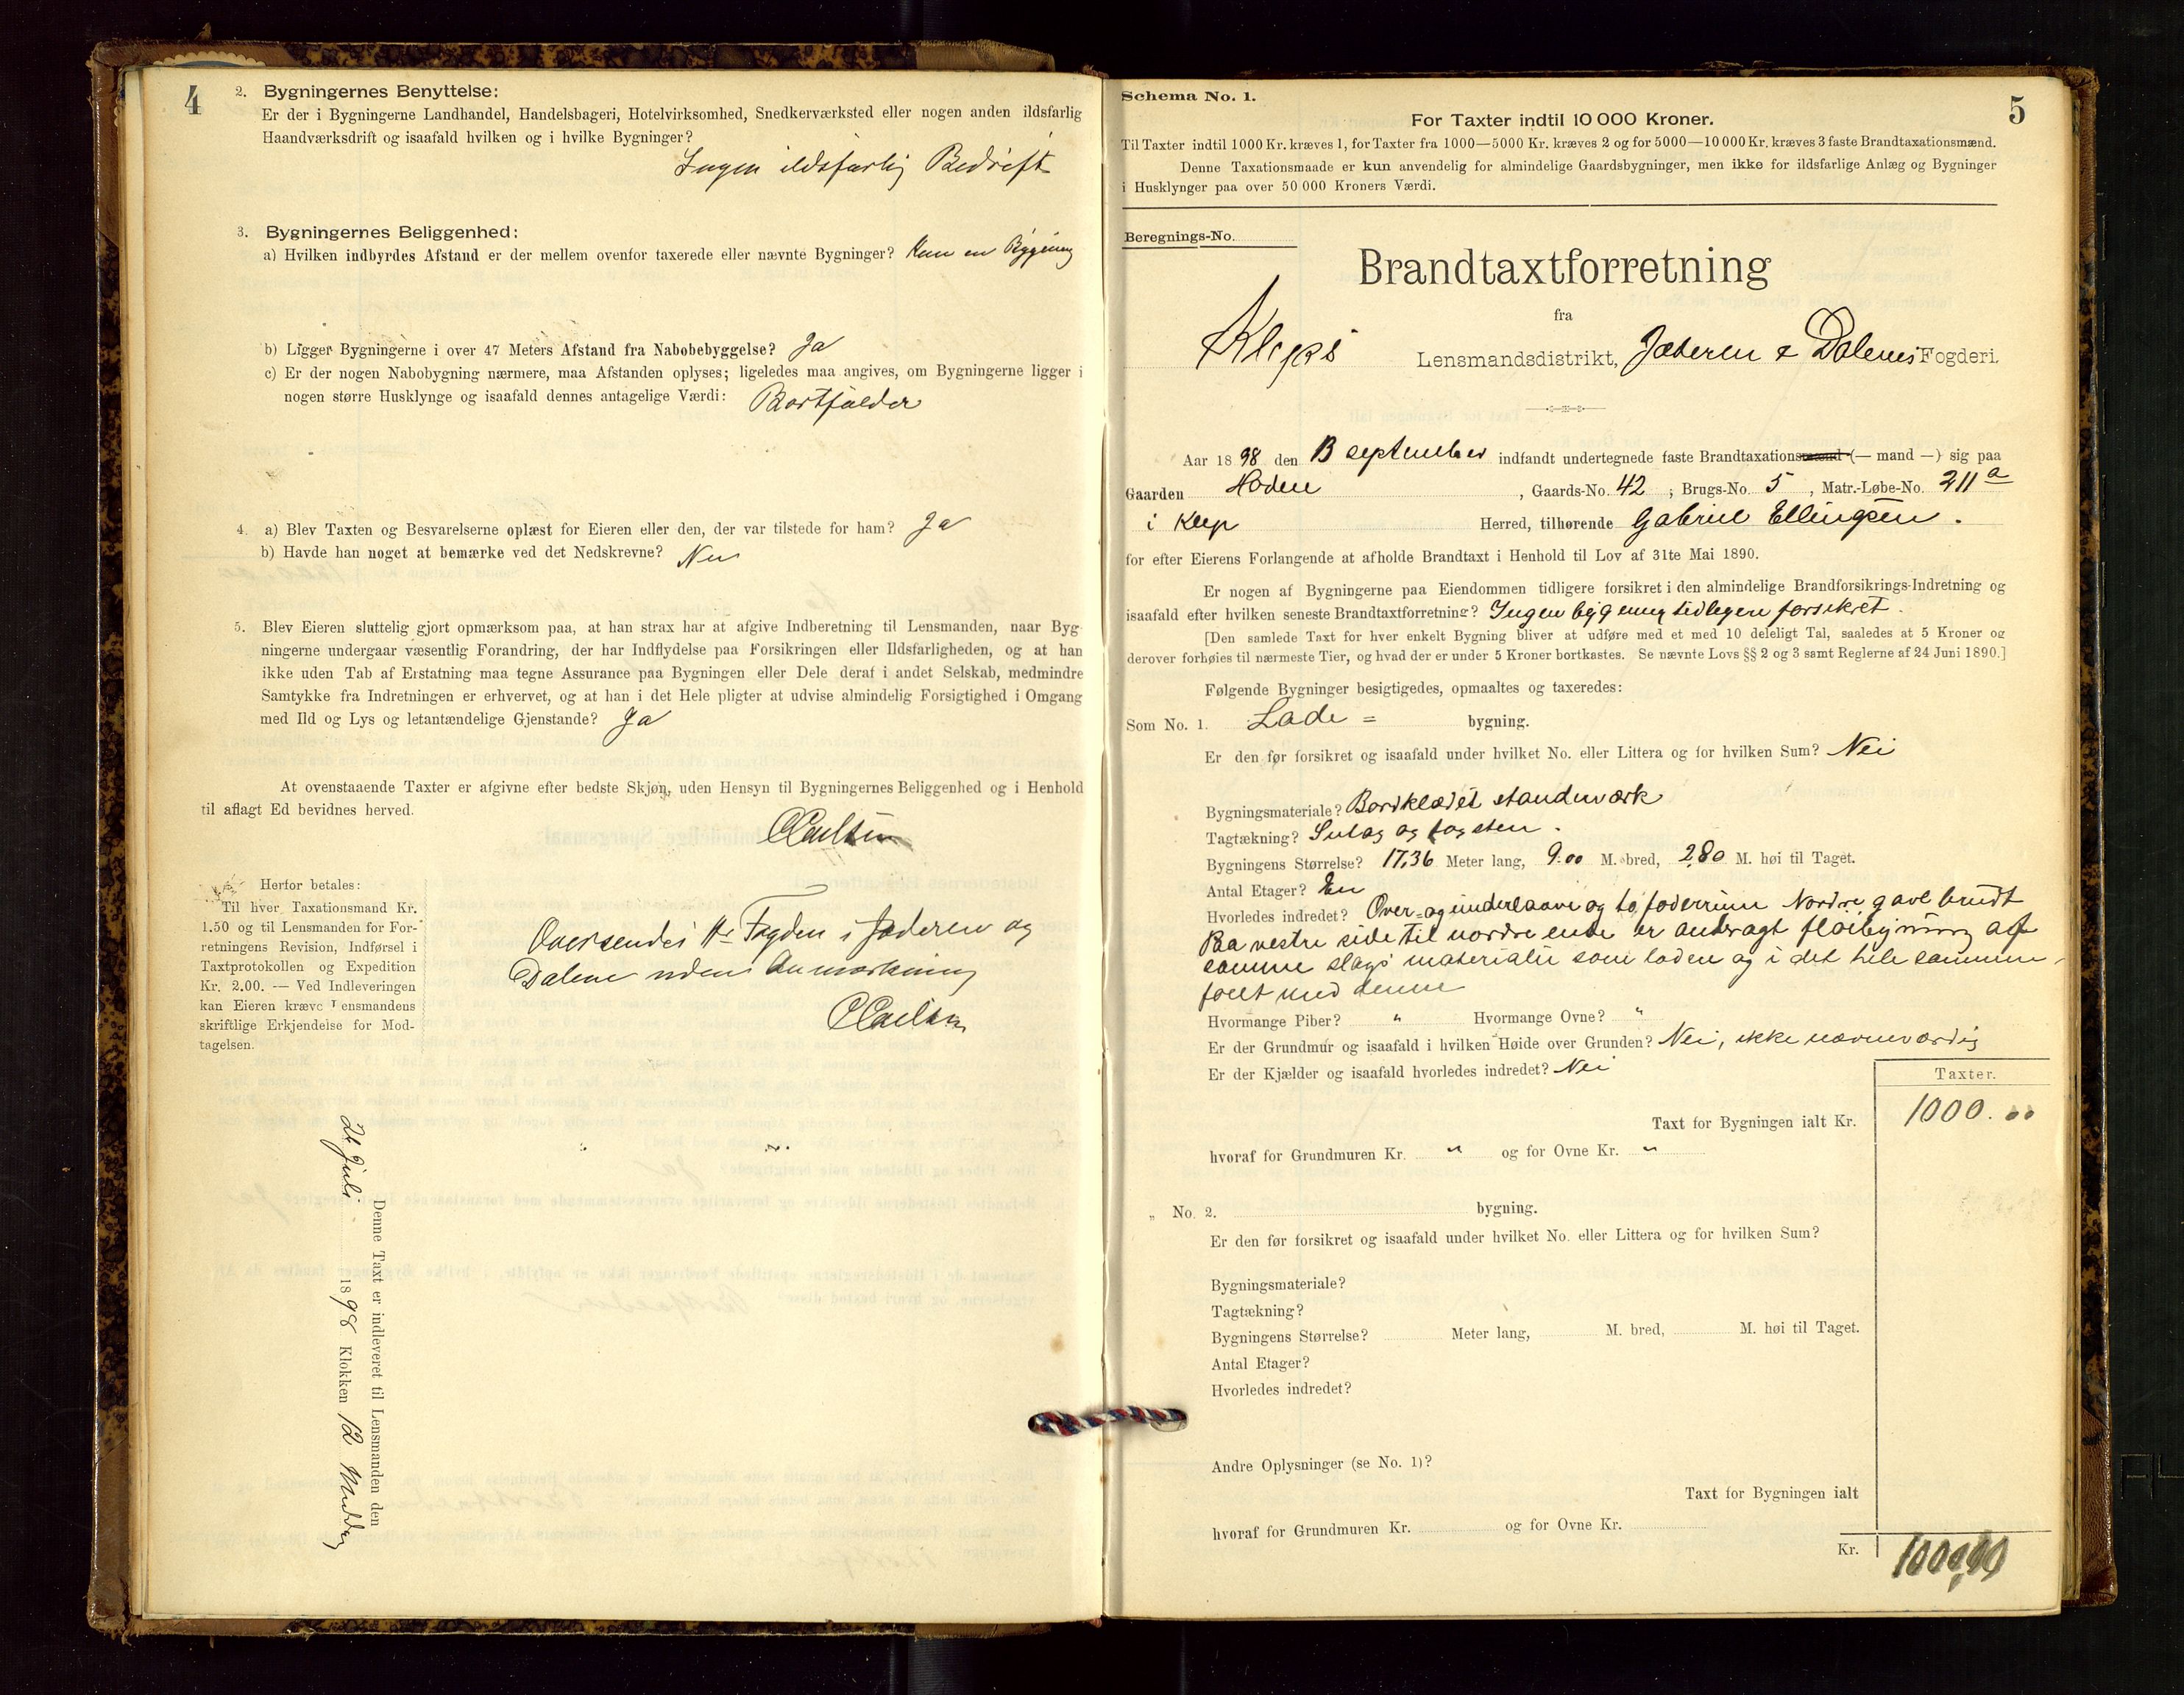 4
2. Bygningernes Benyttelse:
Er der i Bygningerne Landhandel, Handelsbageri, Hotelvirksomhed, Snedkerværksted eller nogen anden ildsfarlig
Haandværksdrift og isaafald hvilken og i hvilke Bygninger?
Ingen ildsfarlig Bedrift
3. Bygningernes Beliggenhed:
a) Hvilken indbyrdes Afstand er der mellem ovenfor taxerede eller nævnte Bygninger? Kun en Bygning
b) Ligger Bygningerne i over 47 Meters Afstand fra Nabobebyggelse? Ja
c) Er der nogen Nabobygning nærmere, maa Afstanden oplyses; ligeledes maa angives, om Bygningerne ligger i
nogen større Husklynge og isaafald dennes antagelige Værdi: Bortfalder
4. a) Blev Taxten og Besvarelserne oplæst for Eieren eller den, der var tilstede for ham? Ja
b) Havde han noget at bemærke ved det Nedskrevne? Nei
5. Blev Eieren sluttelig gjort opmærksom paa, at han strax har at afgive Indberetning til Lensmanden, naar Byg-
ningerne undergaar væsentlig Forandring, der har Indflydelse paa Forsikringen eller Ildsfarligheden, og at han
ikke uden Tab af Erstatning maa tegne Assurance paa Bygningen eller Dele deraf i andet Selskab, medmindre
Samtykke fra Indretningen er erhvervet, og at han i det Hele pligter at udvise almindelig Forsigtighed i Omgang
med Ild og Lys og letantændelige Gjenstande? Ja
At ovenstaaende Taxter er afgivne efter bedste Skjøn, uden Hensyn til Bygningernes Beliggenhed og i Henhold
til aflagt Ed bevidnes herved.
Herfor betales:
Til hver Taxationsmand Kr.
1.50 og til Lensmanden for For-
retningens Revision, Indførsel i
Taxtprotokollen og Expedition
Kr. 2.00. — Ved Indleveringen
kan Eieren kræve Lensmandens
skriftlige Erkjendelse for Mod-
tagelsen.
Oversendes Hr Fogden i Jæderen og
Dalene uden Anmærkning
Denne Taxt er indleveret til Lensmanden den
24 Juli 1898 Klokken 12 Middag
5
Schema No. 1.
For Taxter indtil 10 000 Kroner.
Til Taxter indtil 1000 Kr. kræves 1, for Taxter fra 1000—5000 Kr. kræves 2 og for 5000—10000 Kr. kræves 3 faste Brandtaxationsmænd.
Denne Taxationsmaade er kun anvendelig for almindelige Gaardsbygninger, men ikke for ildsfarlige Anlæg og Bygninger
i Husklynger paa over 50 000 Kroners Værdi.
Beregnings-No.
Brandtaxtforretning
fra
Kleps Lensmandsdistrikt, Jæderen & Dalenes Fogderi.
Aar 1898 den 13 september indfandt undertegnede faste Brandtaxationsmænd (— mand —) sig paa
Gaarden Hodne, Gaards-No. 42, Brugs-No. 5, Matr.-Løbe-No. 211 a
i Klep Herred, tilhørende Gabriel Ellingsen.
for efter Eierens Forlangende at afholde Brandtaxt i Henhold til Lov af 31te Mai 1890.
Er nogen af Bygningerne paa Eiendommen tidligere forsikret i den almindelige Brandforsikrings-Indretning og
isaafald efter hvilken seneste Brandtaxtforretning? Ingen bygning tidligere forsikret.
[Den samlede Taxt for hver enkelt Bygning bliver at udføre med et med 10 deleligt Tal, saaledes at 5 Kroner og
derover forhøies til nærmeste Tier, og hvad der er under 5 Kroner bortkastes. Se nævnte Lovs §§ 2 og 3 samt Reglerne af 24 Juni 1890.]
Følgende Bygninger besigtigedes, opmaaltes og taxeredes:
Som No. 1. Lade = bygning.
Er den før forsikret og isaafald under hvilket No. eller Littera og for hvilken Sum? Nei
Bygningsmateriale? Bordklædet standerværk
Tagtækning? Sulag og tagsten.
Bygningens Størrelse? 17,36 Meter lang, 9.00 M. bred, 2,80 M. høi til Taget.
Antal Etager? En
Hvorledes indredet? Over- og underlaave og to foderrum Nordre gavl brudt
Paa vestre side til nordre ende er anbragt fløibygning af
samme slags materialier som laden og i det hele sammen-
føiet med denne
Hvormange Piber? " Hvormange Ovne? "
Er der Grundmur og isaafald i hvilken Høide over Grunden? Nei, ikke nævneværdig
Er der Kjælder og isaafald hvorledes indredet? Nei
Taxter.
Taxt for Bygningen ialt Kr. 1000.00
hvoraf for Grundmuren Kr. " og for Ovne Kr. "
" No. 2. bygning.
Er den før forsikret og isaafald under hvilket No. eller Littera og for hvilken Sum?
Bygningsmateriale?
Tagtækning?
Bygningens Størrelse? Meter lang, M. bred, M. høi til Taget.
Antal Etager?
Hvorledes indredet?
Andre Oplysninger (se No. 1)?
Taxt for Bygningen ialt
hvoraf for Grundmuren Kr. og for Ovne Kr.
Kr. 1000,00